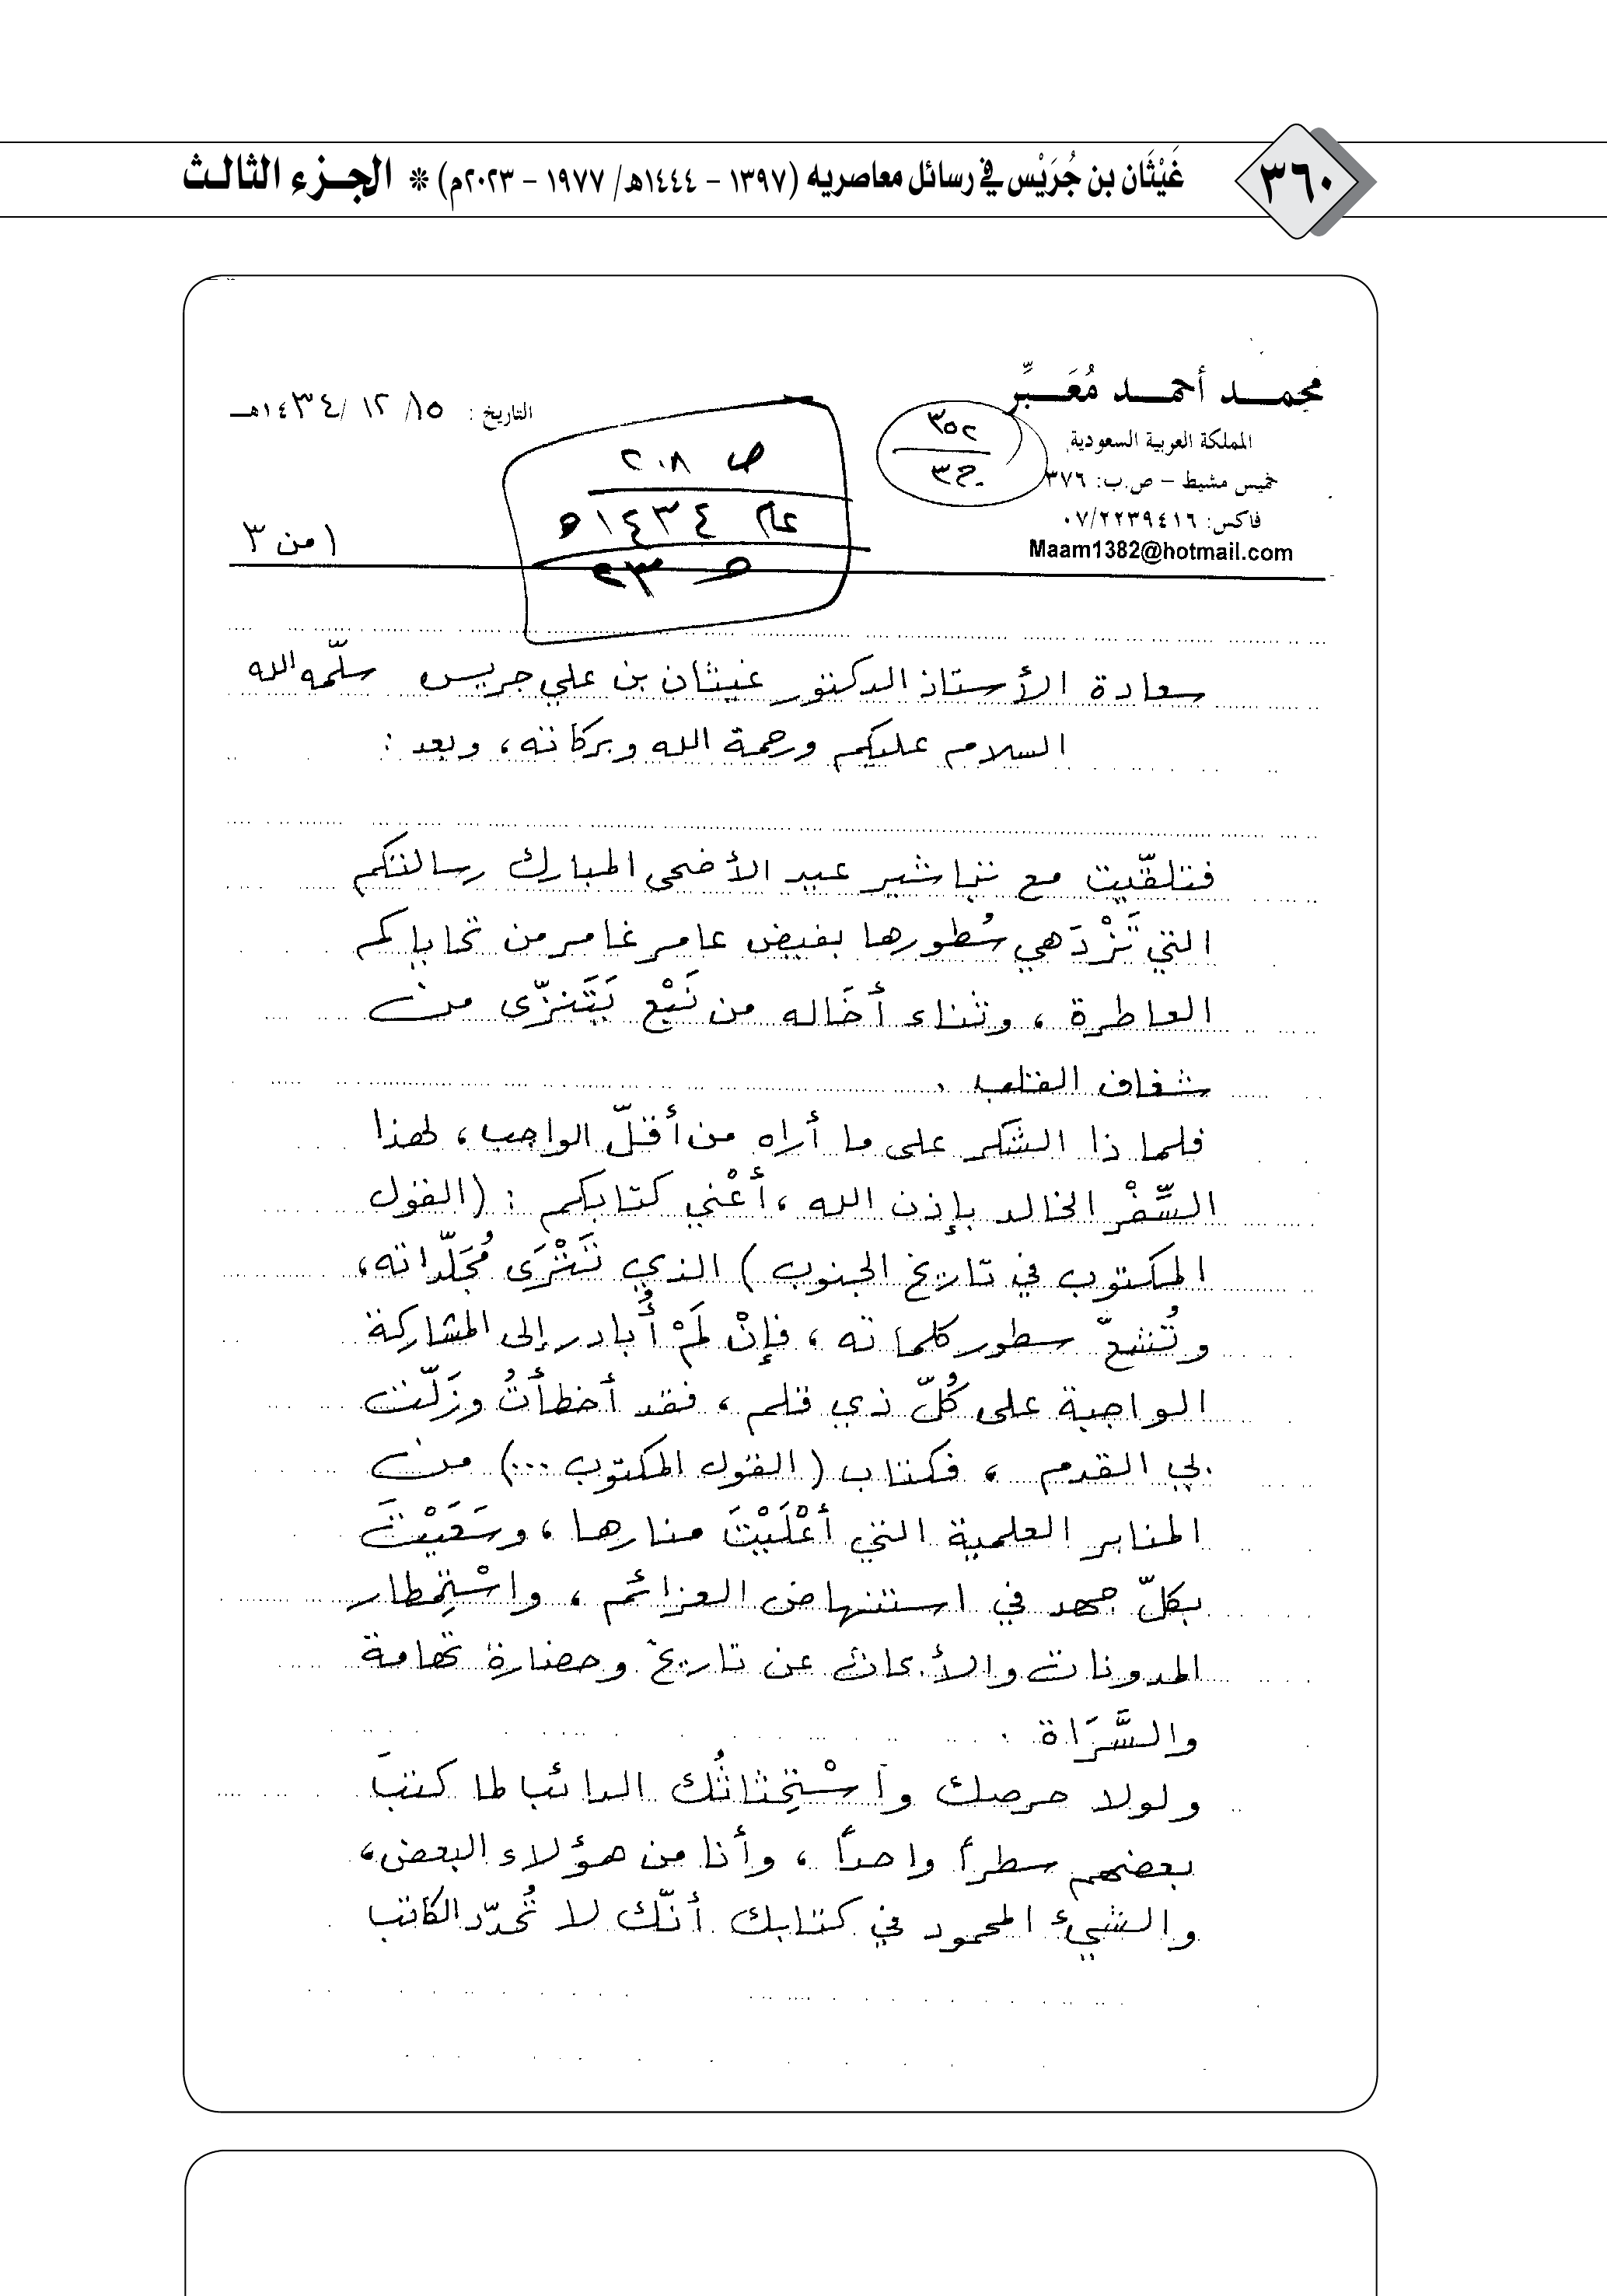 ٣٦٠
غَيْثَان بن جُرَيْس في رسائل معاصريه (١٣٩٧ - ١٤٤٤هـ/ ١٩٧٧ - ٢٠٢٣م) * الجزء الثالث
محمد أحمد مُعَبِّر
المملكة العربية السعودية
خميس مشيط - ص.ب: ٣٧٦
فاكس: ٠٧/٢٢٣٩٤١٦
Maam1382@hotmail.com
٣٥٢
ج٣
التاريخ: ١٥/ ١٢ /١٤٣٤هـ
ص ٢٠٨
عام ١٤٣٤ه
١ من ٣
سعادة الأستاذ الدكتور غيثان بن علي جريس سلّمه الله
السلام عليكم ورحمة الله وبركاته، وبعد:
فتلقّيت مع تباشير عيد الأضحى المبارك رسالتكم
التي تَزْدَهي سُطورها بفيض عامر غامر من تحاياكم
العاطرة، وثناء أخَاله من نَبْع يَتَنزّى من
شغاف القلب.
فلماذا الشكر على ما أراه من أقلّ الواجب، لهذا
السِّفْر الخالد بإذن الله، أعْني كتابكم: (القول
المكتوب في تاريخ الجنوب) الذي تَتْرَى مُجَلّداته،
وتُشعّ سطور كلماته، فإنْ لَمْ أُبادر إلى المشاركة
الواجبة على كُلّ ذي قلم، فقد أخطأتُ وزَلّت
بي القدم، فكتاب (القول المكتوب...) من
المنابر العلمية التي أعْلَيْتَ منارها، وسَعَيْتَ
بكلّ جهد في استنهاض العزائم، واسْتِمطار
المدونات والأبحاث عن تاريخ وحضارة تهامة
والسَّرَاة.
ولولا حرصك واسْتِحثاثُك الدائب لما كتبَ
بعضهم سطراً واحداً، وأنا من هؤلاء البعض،
والشيء المحمود في كتابك أنّك لا تُحدّد الكاتب